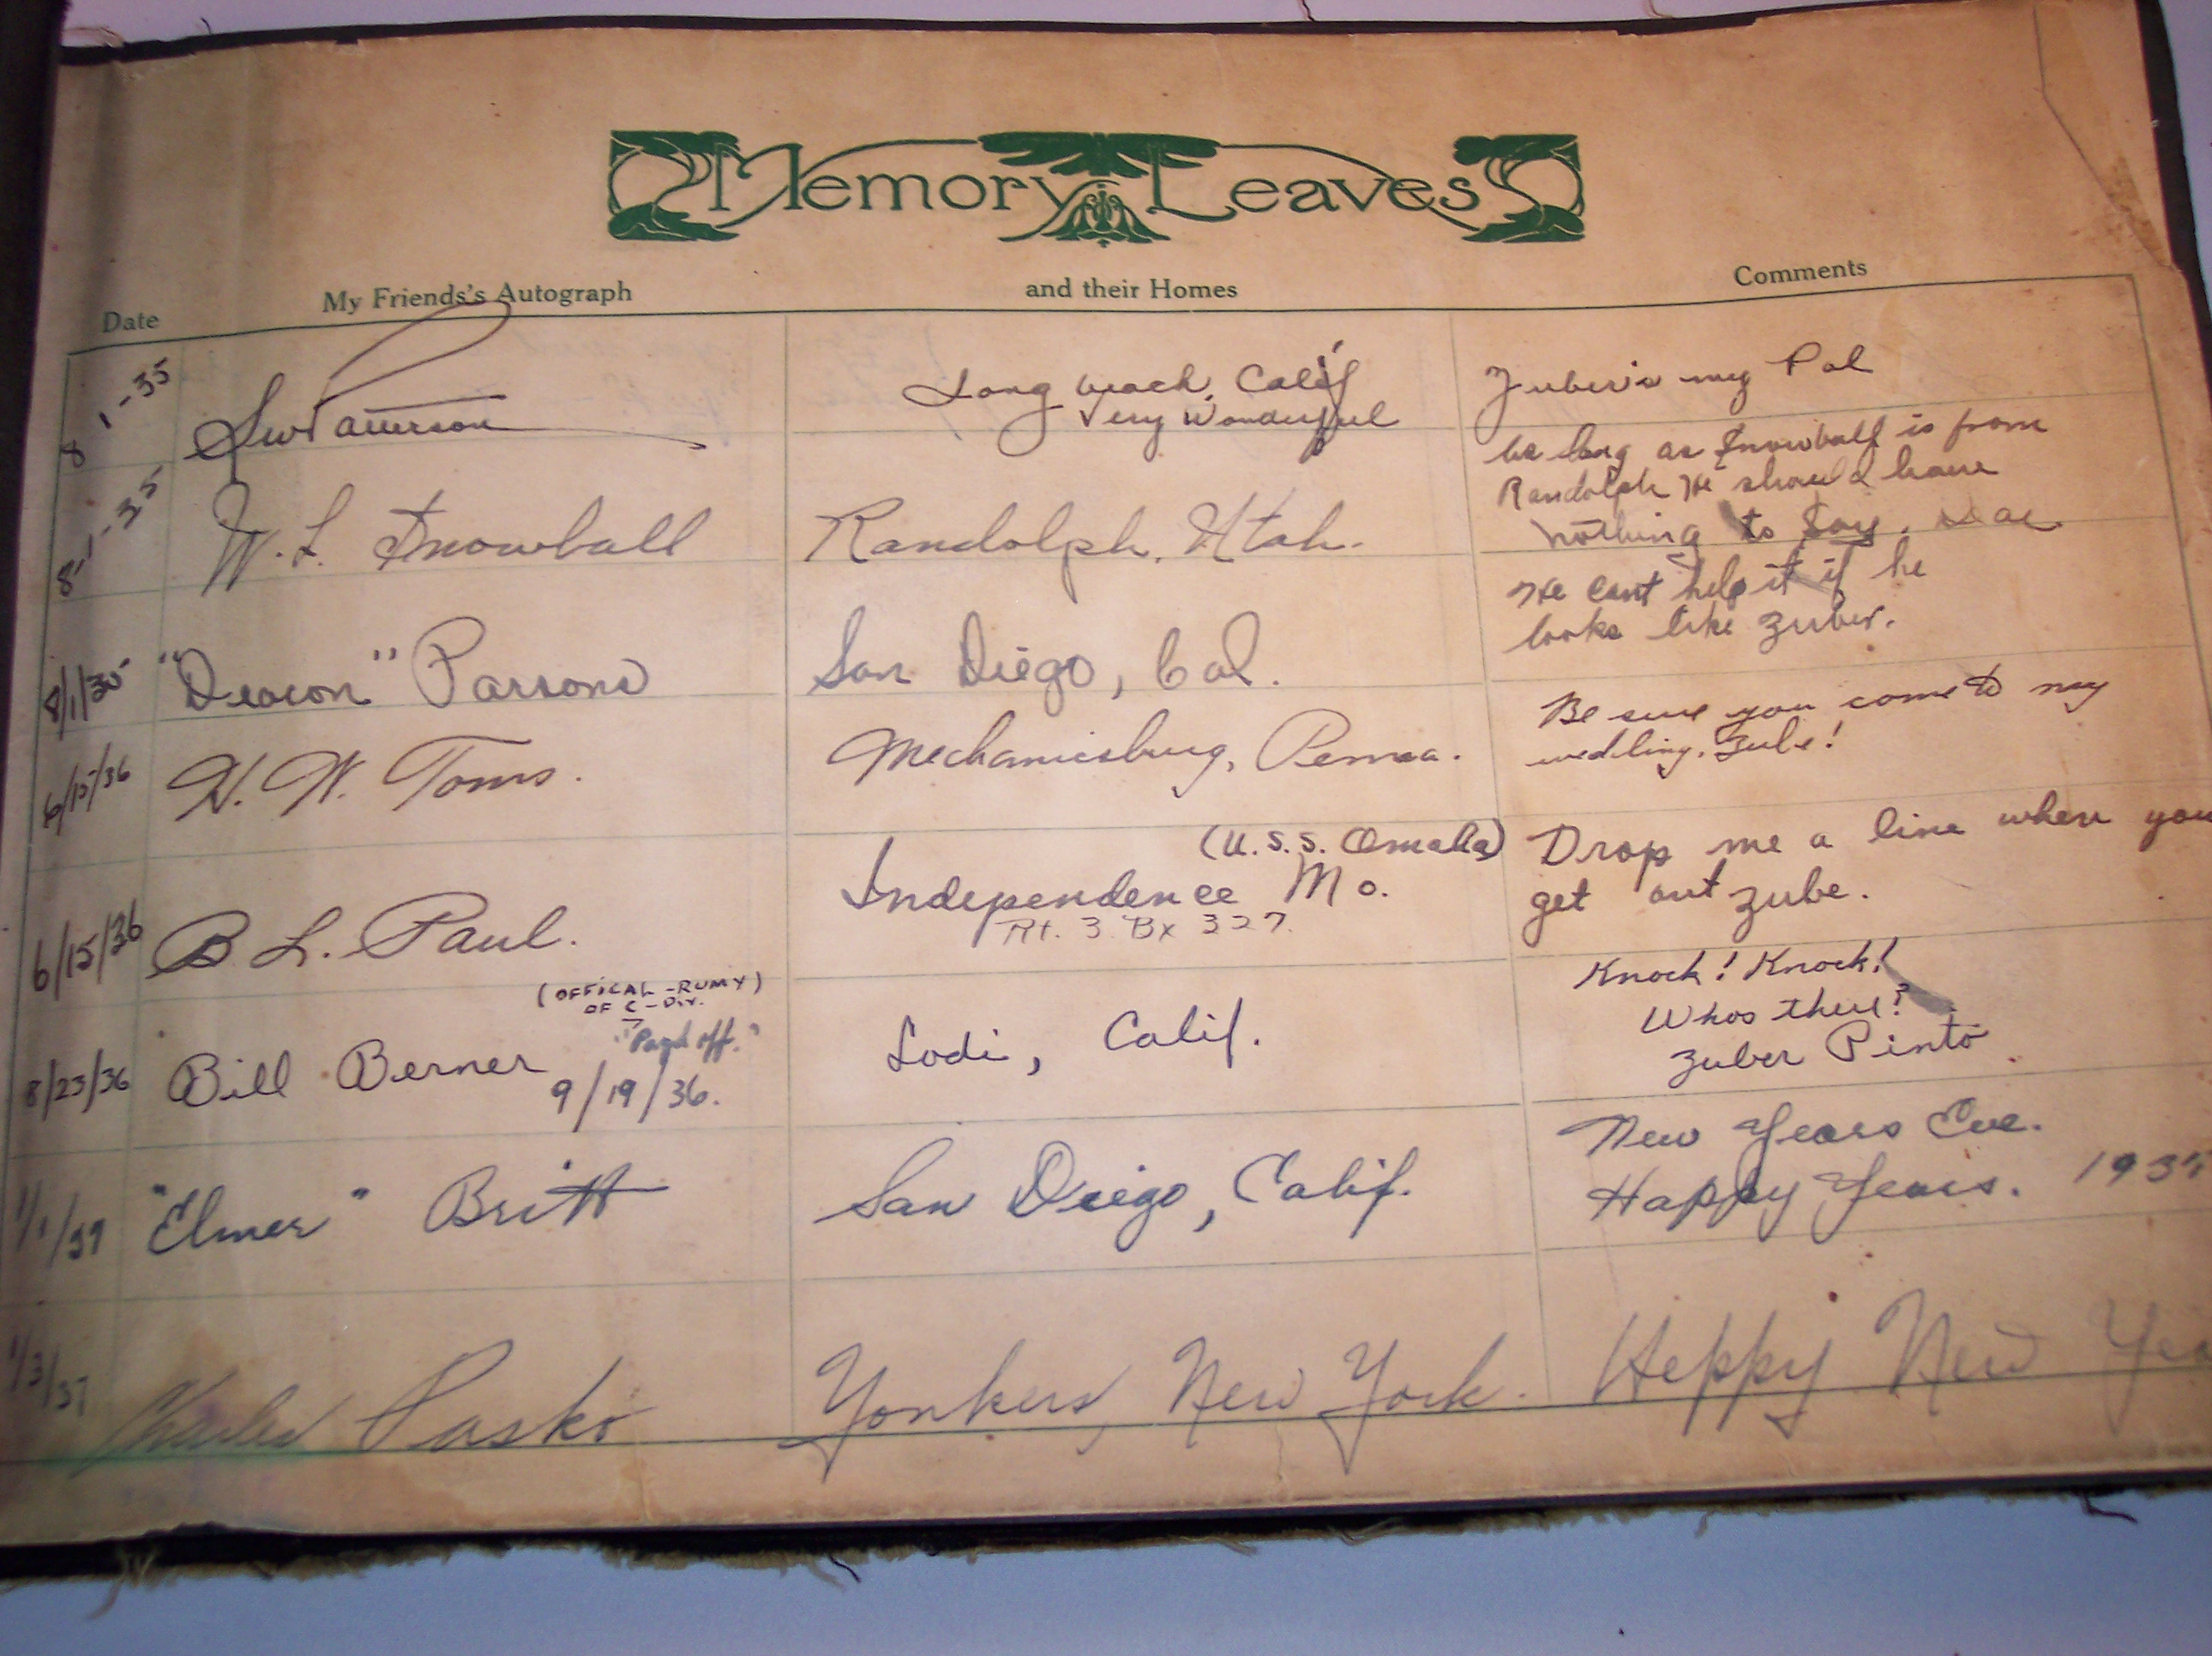 Memory Leaves
Date My Friends's Autograph and their Homes Comments
8 1-35 Patterson Long beach, Calif Zuber's my Pal
Very Wonderful
8-1-35 W. L. Snowball Randolph, Utah. as long as Snowball is from
Randolph He should have
nothing to say.
8/1/35 "Deacon" Parsons San Diego, Cal. He cant help it if he
looks like Zuber.
6/15/36 H. W. Toms. Mechanicsburg, Penna. Be sure you come to my
wedding, Zube!
6/15/36 B L. Paul. (U.S.S. Omaha) Drop me a line when you
Independence Mo. get out Zube.
Rt. 3 Bx 327.
(OFFICAL-RUMY)
OF C-DIV.
8/23/36 Bill Berner "Payd off." Lodi, Calif. Knock! Knock!
9/19/36. Whos there?
Zuber Pinto
1/1/39 "Elmer" Britt San Diego, Calif. New Years Eve.
Happy Years. 193
1/3/37 Charles Pasko Yonkers, New York. Heppy New Yea